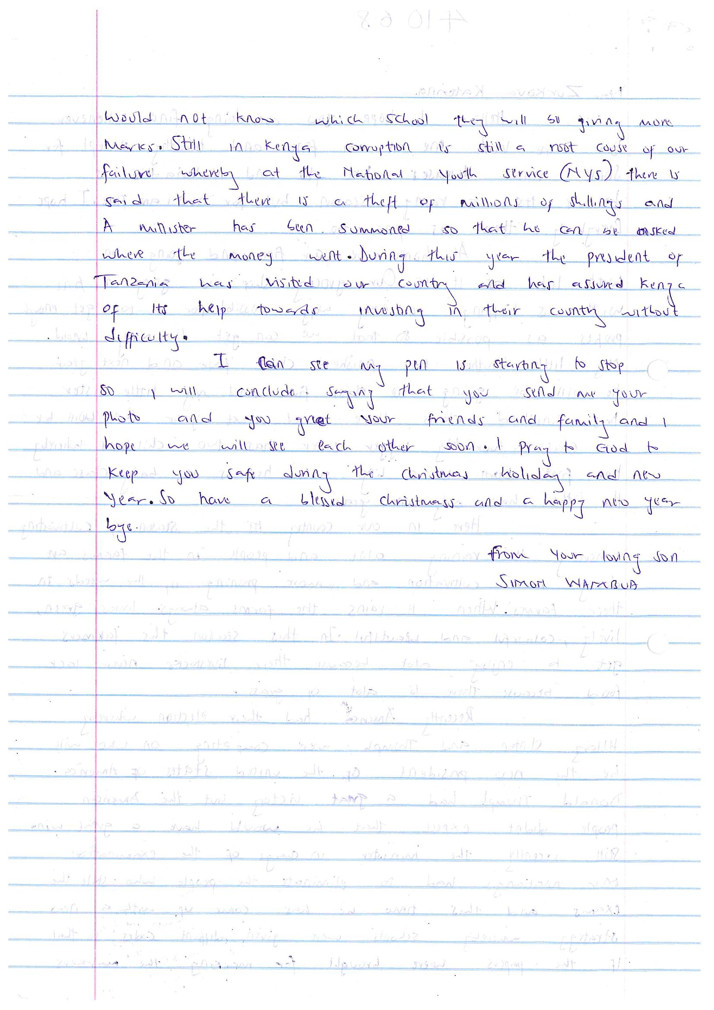 would not know which school they will be giving more
Marks. Still in Kenya corruption is still a root couse of our
failure whereby at the National youth service (NYS) there is
said that there is a theft of millions of shillings and
A minister has been summoned so that he can be asked
where the money went. During this year the president of
Tanzania has visited our country and has assured Kenya
of its help towards investing in their country without
difficulty.
I can see my pen is starting to stop
so i will conclude. saying that you send me your
photo and you greet your friends and family and I
hope we will see each other soon. I pray to God to
keep you safe during the Christmas holiday and new
year. So have a blessed christmass and a happy new year
bye.
from your loving son
SIMON WAMBUA